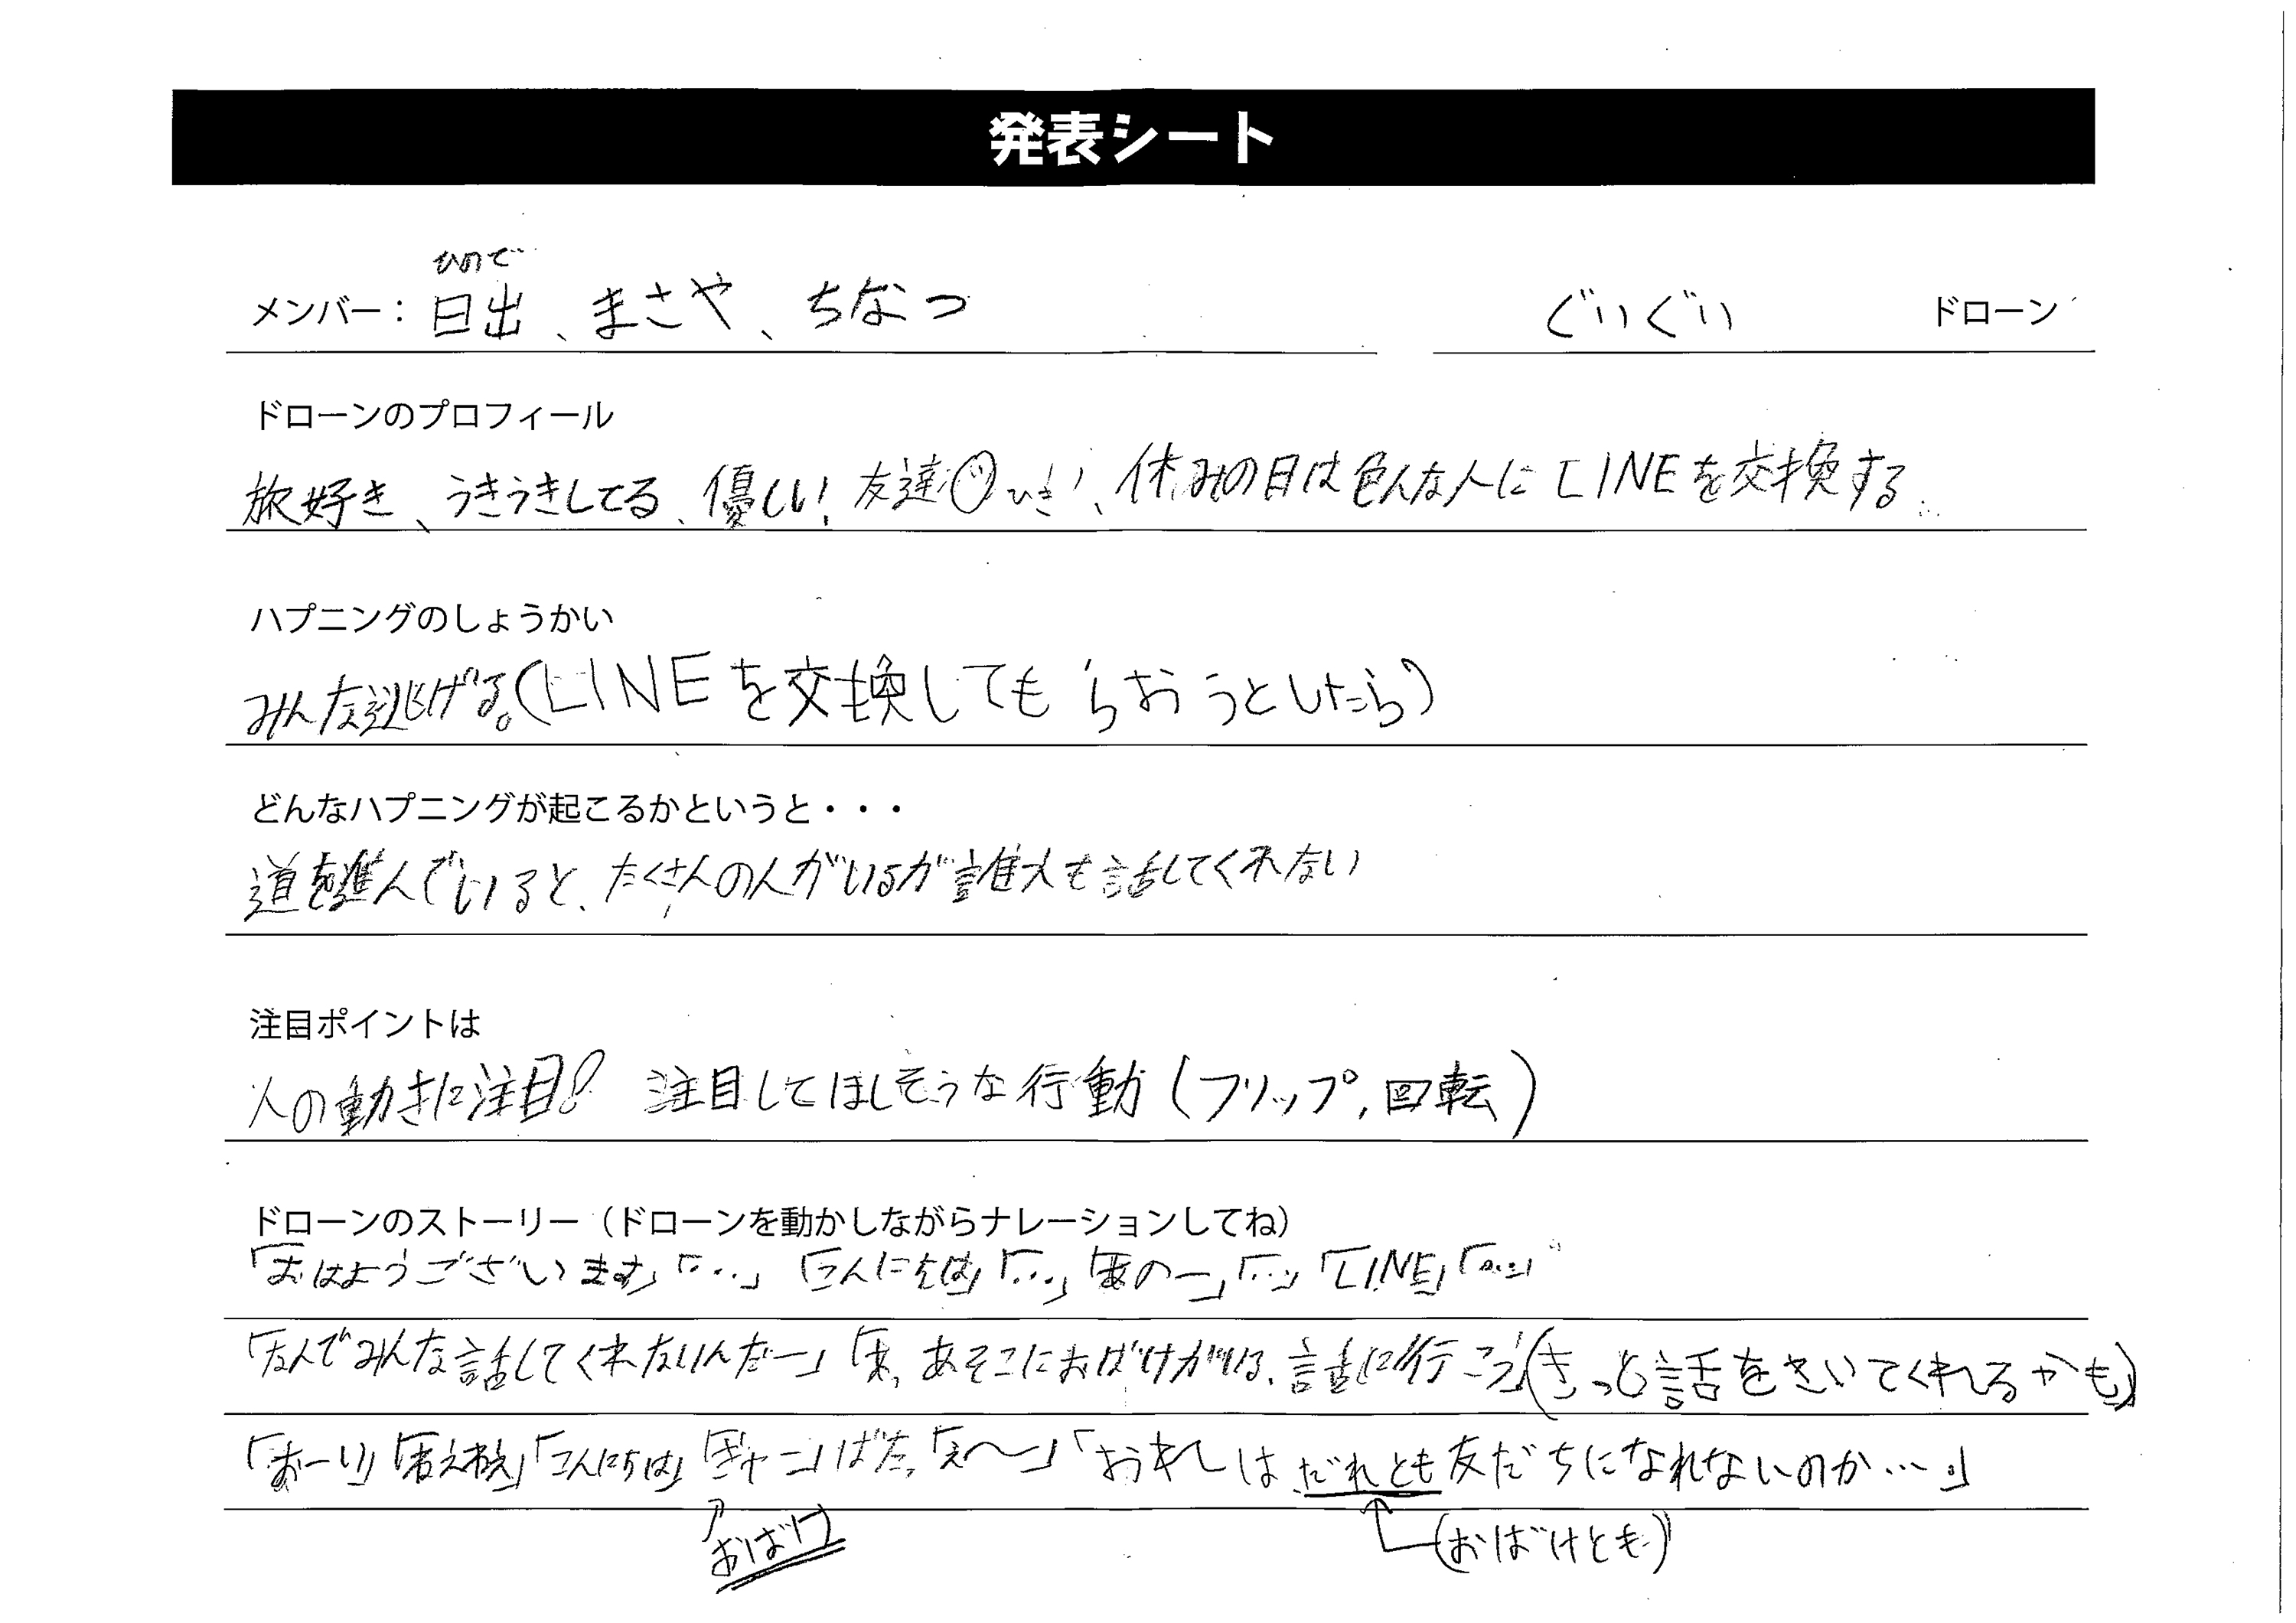 発表シート
ひので
メンバー：日出、まさや、ちなつ ぐいぐい ドローン
ドローンのプロフィール
旅好き、うきうきしてる、優しい! 友達 休みの日は色んな人にLINEを交換する
ハプニングのしょうかい
みんな逃げる。(LINEを交換してもらおうとしたら)
どんなハプニングが起こるかというと・・・
道を進んでいると、たくさんの人がいるが誰人も話してくれない
注目ポイントは
人の動きに注目! 注目してほしそうな行動(フリップ,回転)
ドローンのストーリー（ドローンを動かしながらナレーションしてね）
「おはようございます」「…」「こんにちは」「…」「あのー」「…」「LINE」「…」
「なんでみんな話してくれないんだー」「あ、あそこにおばけがいる、話に行こう」(きっと話をきいてくれるかも)
「おーい」「ねえねえ」「こんにちは」「ぎゃー」ばた、「え〜」「おれはだれとも友だちになれないのか…。」
おばけ (おばけとも)